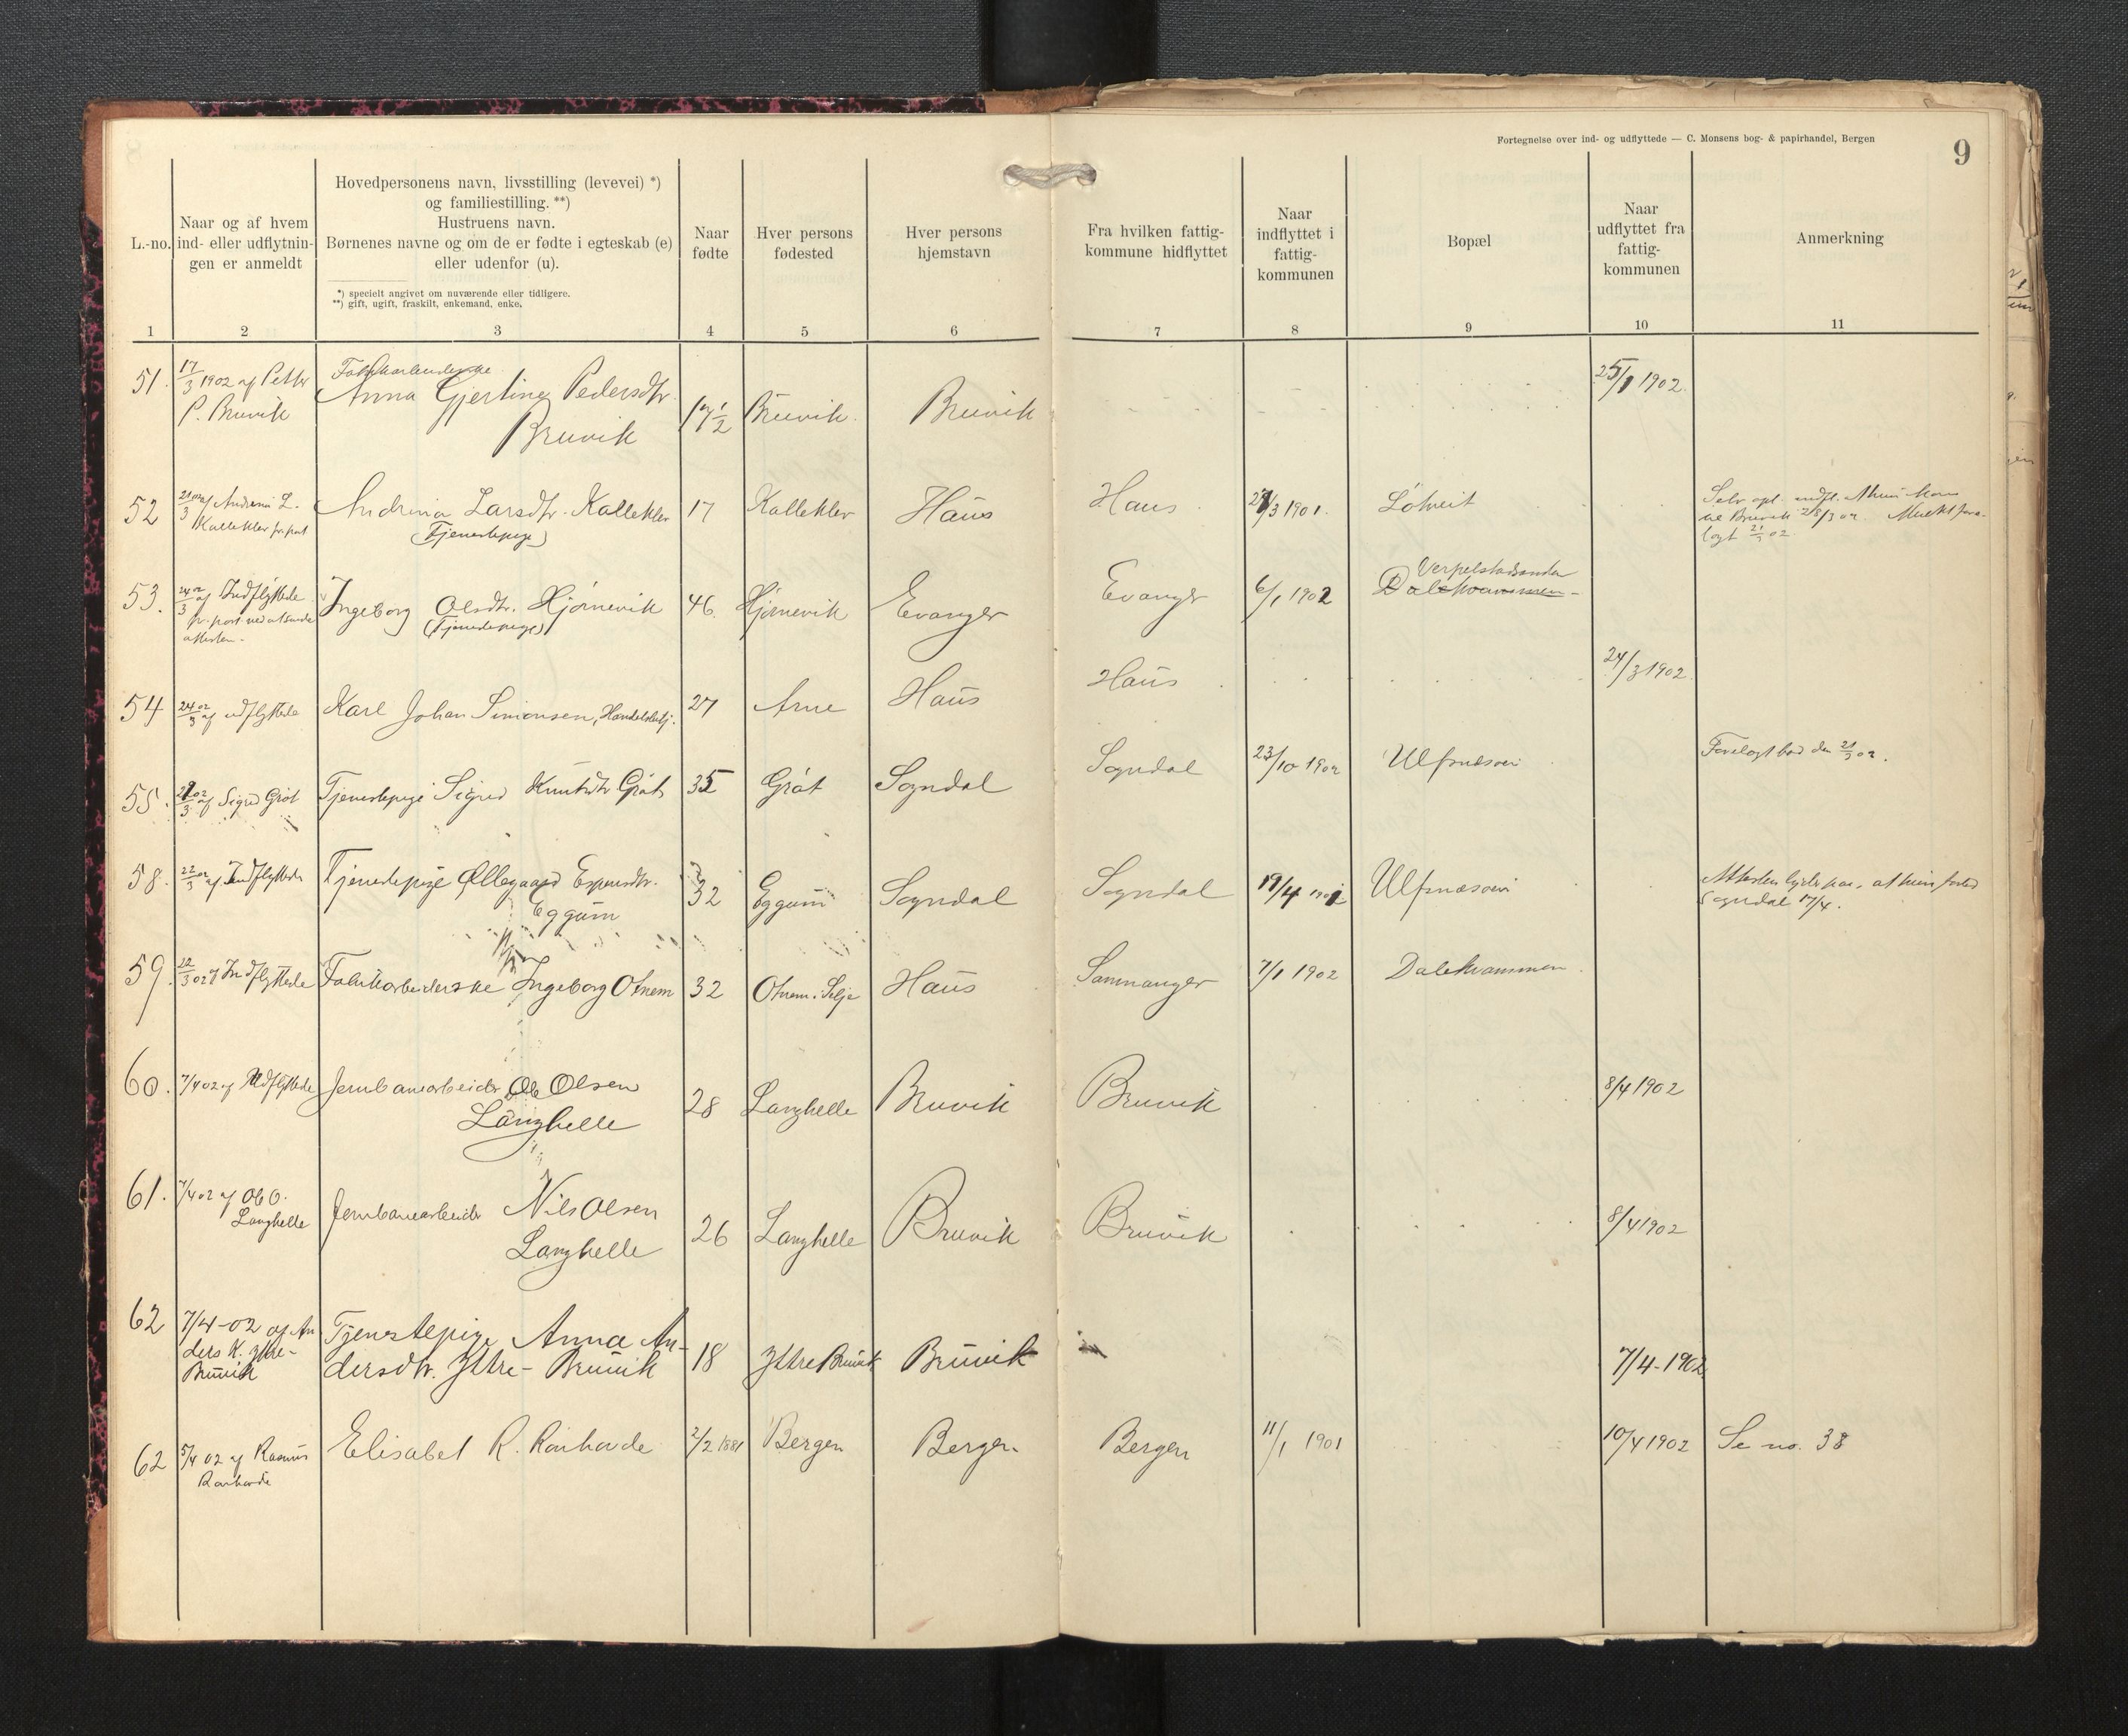 Fortegnelse over ind- og udflyttede — C. Monsens bog- & papirhandel, Bergen
9
L.-no.
Naar og af hvem
ind- eller udflytnin-
gen er anmeldt
Hovedpersonens navn, livsstilling (levevei) *)
og familiestilling. **)
Hustruens navn.
Børnenes navne og om de er fødte i egteskab (e)
eller udenfor (u).
*) specielt angivet om nuværende eller tidligere.
**) gift, ugift, fraskilt, enkemand, enke.
Naar
fødte
Hver persons
fødested
Hver persons
hjemstavn
Fra hvilken fattig-
kommune hidflyttet
Naar
indflyttet i
fattig-
kommunen
Bopæl
Naar
udflyttet fra
fattig-
kommunen
Anmerkning
1 2 3 4 5 6 7 8 9 10 11
51. 17/3 1902 af Petter
P. Bruvik
Fabrikarbeiderske
Anna Gjertine Pedersdtr.
Bruvik
17 1/2 Bruvik. Bruvik
25/1 1902.
52 21/3 02 af Andrina L.
Kallekler pr. post
Andrina Larsdtr. Kallekler
(Tjenestepige)
17 Kallekler Haus Haus 1901. Lótveit
53. 24/3 02 af Indflyttede
pr. post ved
attesten-
Ingeborg Olsdtr. Hjørnevik
(Tjenestepige)
46. Hjørnevik Evanger Evanger 6/1 1902
Dalekvammen-
54 24/3 02 af udflyttede Karl Johan Simonsen, Handelsbetj. 27 Arne Haus Haus 24/3 1902.
55. 21/3 02 af Sigrid Grót Tjenestepige Sigrid Knutsdtr Grót 35 Grót Sogndal Sogndal 23/10 1902 Ulfsnæsøen
Forelagt bod den 21/3 02.
58. 22/3 02 af Indflyttede Tjenestepige Øllegaard Espensdtr.
Eggum
32 Eggum Sogndal Sogndal 19/4 Ulfsnæsøen
Attesten lyder paa, at hun forlod
Sogndal 17/4.
59. 22/3 02 af Indflyttede Fabrikarbeiderske Ingeborg Otnem 32 Otnem i Selje Haus Samnanger 7/1 1902 Dalekvammen
60. 7/4 02 af Udflyttede Jernbanearbeider Ole Olsen
Langhelle
28 Langhelle Bruvik Bruvik 8/4 1902
61. 7/4 02 af Ole O.
Langhelle
Jernbanearbeider Nils Olsen
Langhelle
26 Langhelle Bruvik Bruvik 8/4 1902
62 7/4-02 af An
ders K. Yttre-
Bruvik
Tjenestepige Anna An-
dersdtr. Yttre-Bruvik
18 Yttre Bruvik Bruvik 7/4-1902.
62 5/4 02 af Rasmus
Ronhovde
Elisabet R. Ronhovde 2/2 1881 Bergen Bergen Bergen 11/1 1901 10/4 1902 Se no. 38